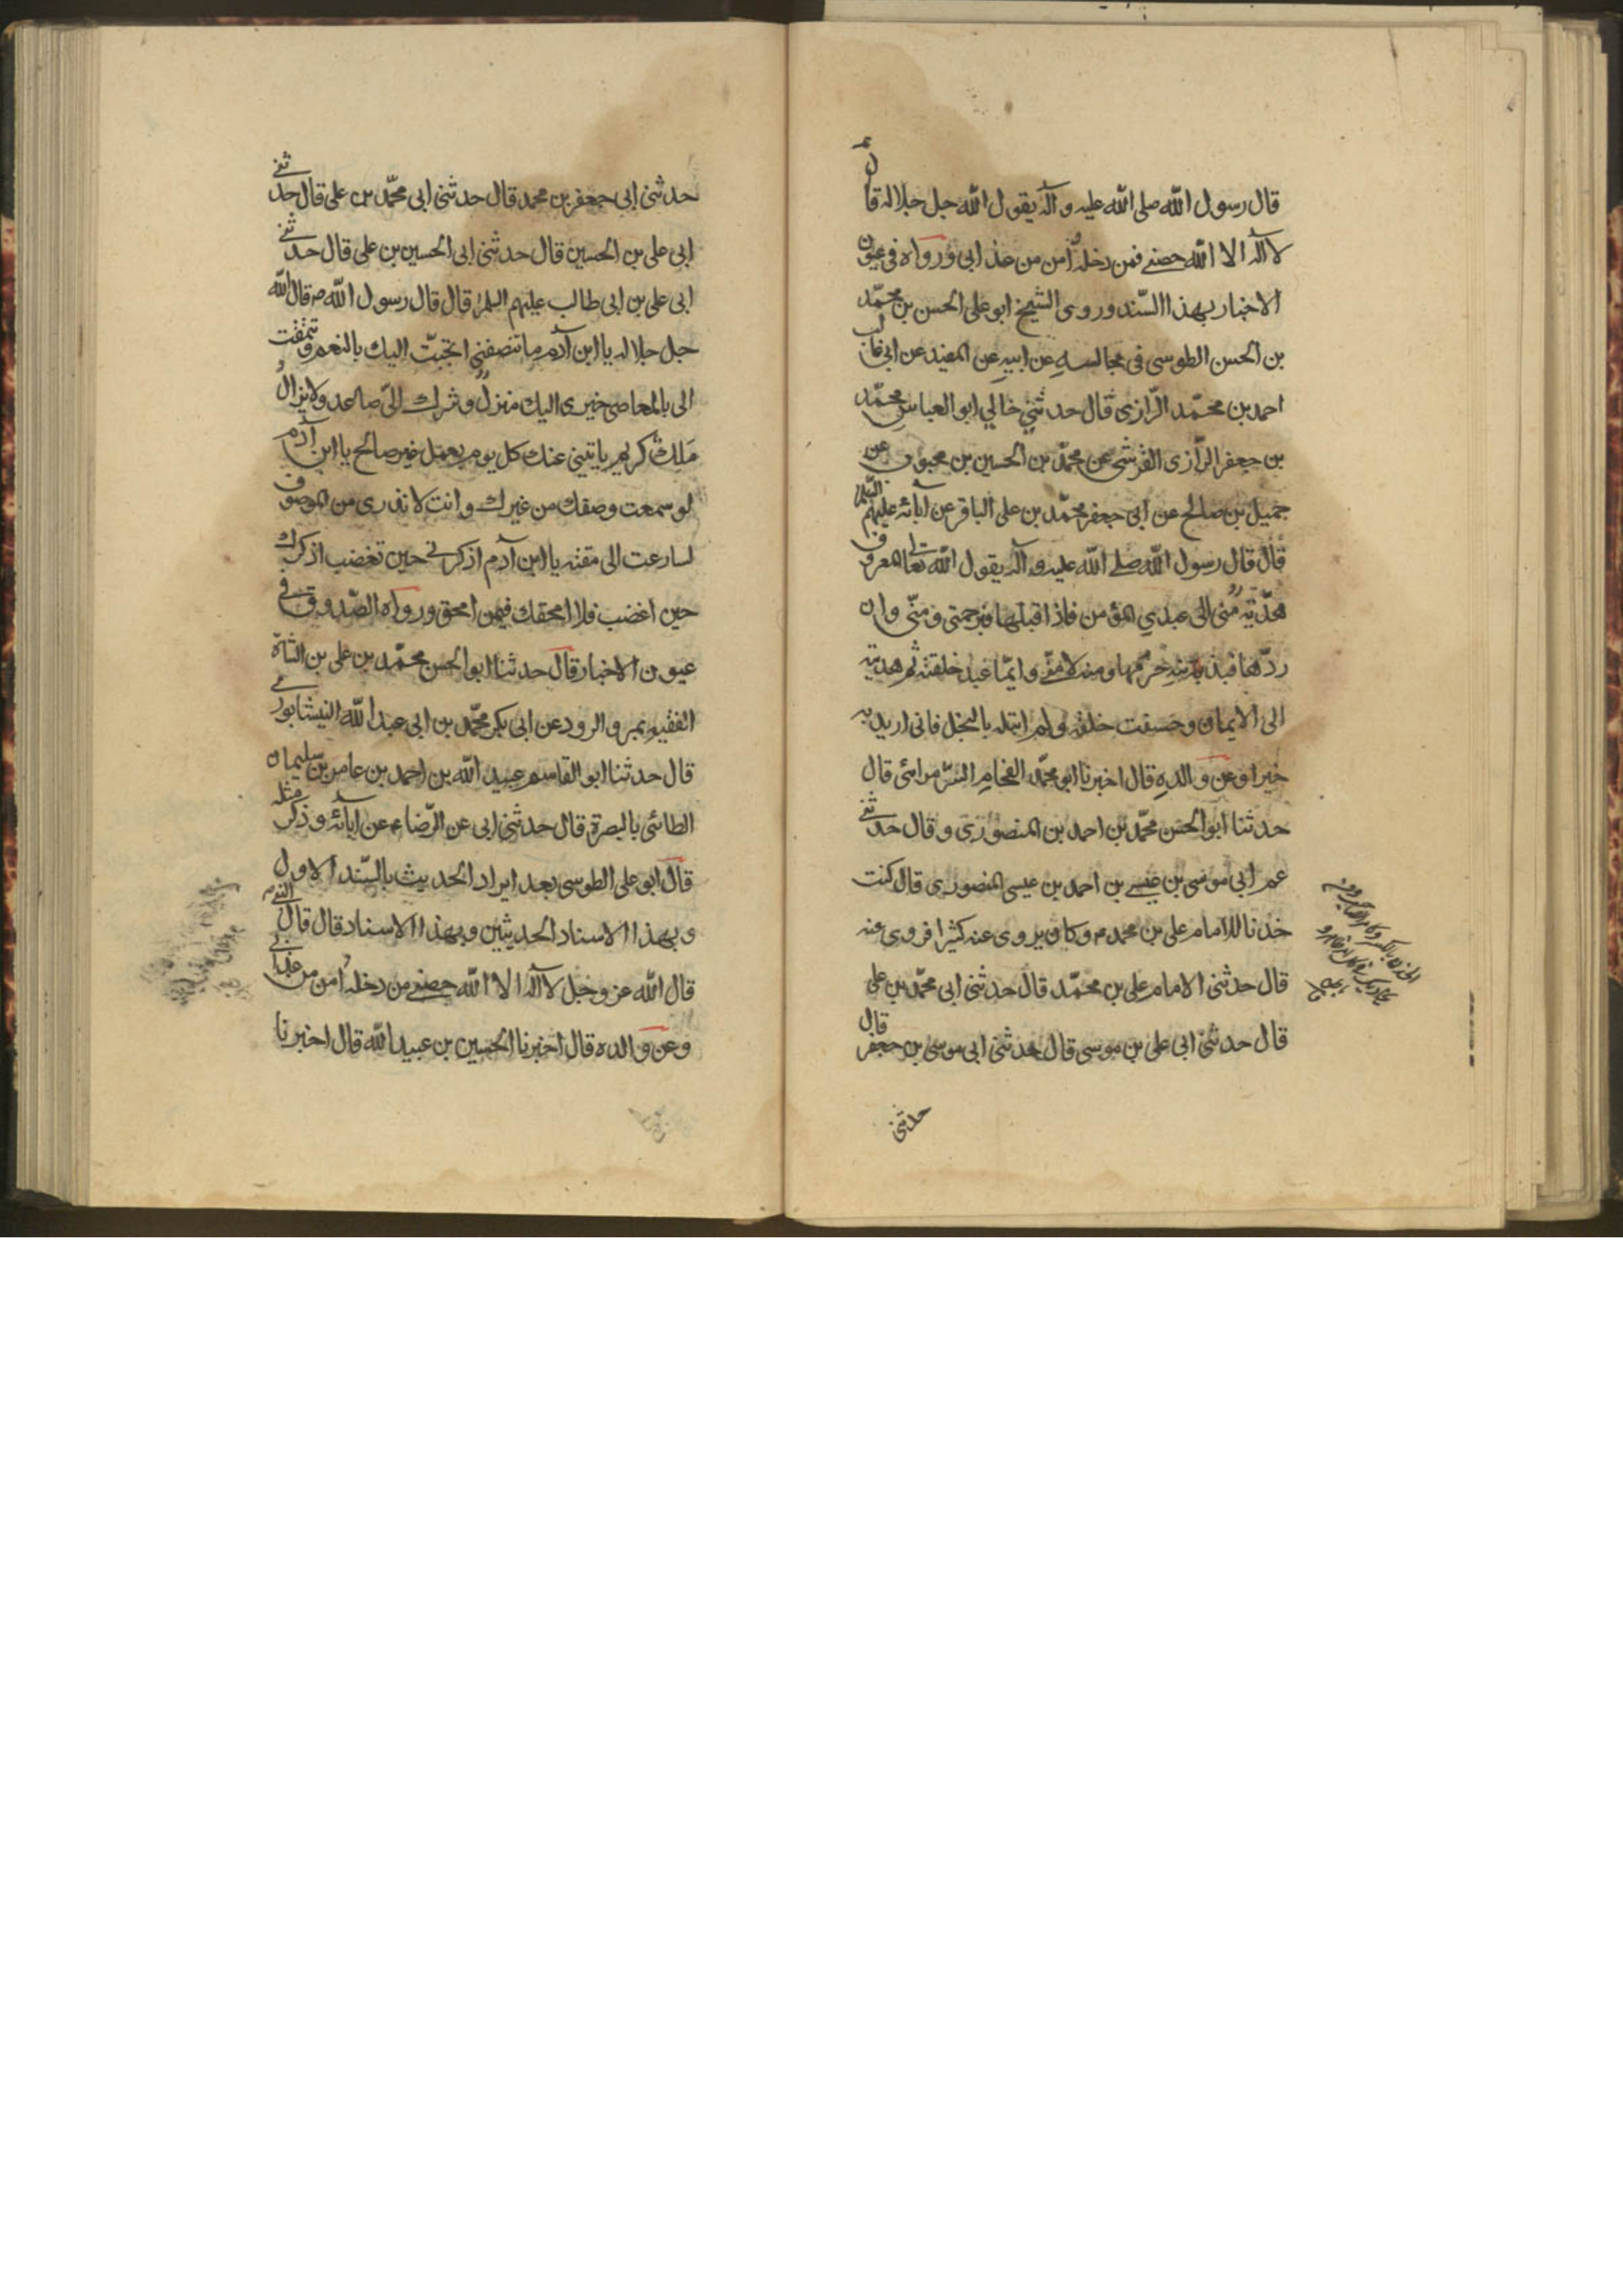 قال رسول الله صلى الله عليه وآله يقول الله جل جلاله قال
لا اله الا الله حصني فمن دخله أمن من عذابي ورواه في عيون
الاخبار بهذا السّند وروى الشيخ ابو على الحسن بن محمّد
بن الحسن الطوسى في مجالسه عن ابيه عن المفيد عن ابي غالب
احمد بن محمّد الرّازى قال حدثني خالي ابو العباس محمّد
بن جعفر الرّازى القرشى عن محمّد بن الحسين بن محبوب عن
جميل بن صالح عن ابى جعفر محمّد بن على الباقر عن آبائه عليهم السّلم
قال قال رسول الله صلى الله عليه وآله يقول الله تعا المعروف
هديّة منى الى عبدي المؤمن فاذا قبلها فبرحمتى ومنّى وان
ردّها فبذنبه حرمها ومنه لا منّي وايّما عبد خلقته ثم هديته
الى الايمان وحسنت خلقه ولم ابتله بالبخل فانى اريد به
خيرا وعن والده قال اخبرنا ابو محمّد الفحام السّر مرائى قال
حدثنا ابو الحسن محمّد بن احمد بن المنصورى وقال حدثني
عم ابى موسى بن عيسى بن احمد بن عيسى المنصورى قال كنت
خدنا للامام على بن محمد م وكان يروى عنه كثيرا فروى عنه
قال حدثنى الامام على بن محمّد قال حدثنى ابى محمّد بن على
قال حدثنى ابى على بن موسى قال حدثنى ابى موسى بن جعفر قال
حدثنى
حدثنى ابى جعفر بن محمد قال حدثنى ابى محمّد بن على قال حدثني
ابى على بن الحسين قال حدثنى ابى الحسين بن على قال حدثني
ابى على بن ابى طالب عليهم السلم قال قال رسول الله ص قال الله
جل جلاله يا ابن آدم ما تنصفنى اتحبّب اليك بالنعم وتتمقت
الى بالمعاصى خيرى اليك منزل وشرك الىّ صاعد ولا يزال
ملك كريم ياتينى عنك كل يوم بعمل غير صالح يا ابن آدم
لو سمعت وصفك من غيرك وانت لا تدرى من الموصوف
لسارعت الى مقته يا ابن آدم اذكرني حين تغضب اذكرك
حين اغضب فلا امحقك فيمن امحق ورواه الصّدوق في
عيون الاخبار قال حدثنا ابو الحسن محمّد بن على بن الشاة
الفقيه بمرو الرود عن ابى بكر محمّد بن ابى عبد الله النيشابورى
قال حدثنا ابو القاسم عبيد الله بن احمد بن عامر بن سليمان
الطائى بالبصرة قال حدثنى ابى عن الرّضا ع عن آبائه وذكر مثله
قال ابو على الطوسى بعد ايراد الحديث بالسّند الاول
وبهذا الاسناد الحديثين وبهذا الاسناد قال قال النبي
قال الله عز وجل لا اله الا الله حصني من دخله أمن من عذابي
وعن والده قال اخبرنا الحسين بن عبيد الله قال اخبرنا